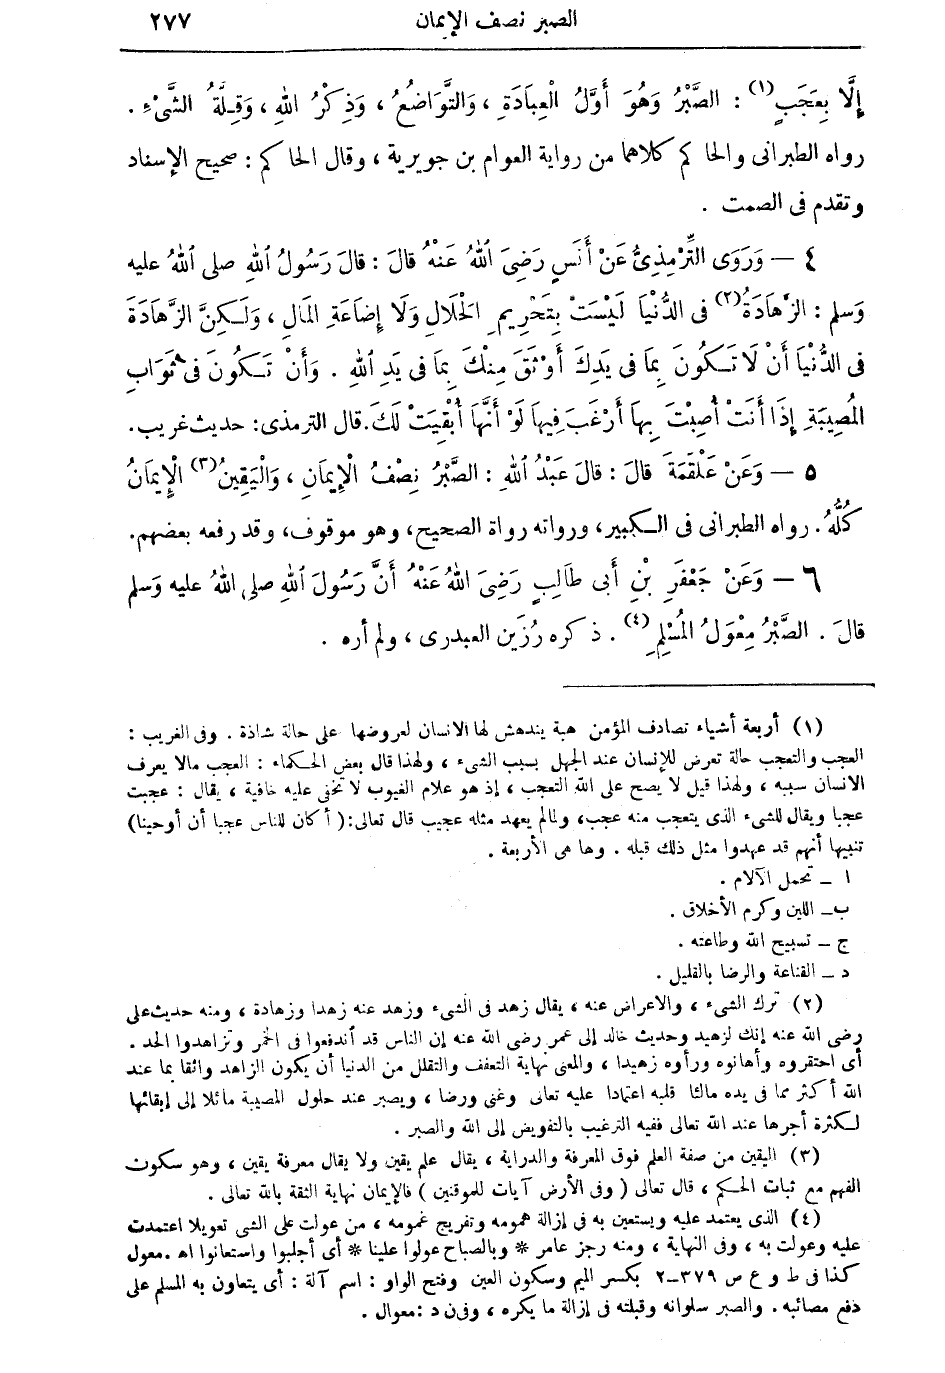 الصبر نصف الإيمان ٢٧٧
إِلَّا بِعَجَبٍ(١) : الصَّبْرُ وَهُوَ أَوَّلُ الْعِبَادَةِ ، وَالتَّوَاضُعُ ، وَذِكْرُ اللهِ ، وَقِلَّةُ الشَّىْءِ .
رواه الطبرانى والحاكم كلاهما من رواية العوام بن جويرية ، وقال الحاكم : صحيح الإسناد
وتقدم فى الصمت .
٤ — وَرَوَى التِّرْمِذِىُّ عَنْ أَنَسٍ رَضِىَ اللهُ عَنْهُ قالَ : قالَ رَسُولُ اللهِ صلى اللهُ عليه
وَسلم : الزَّهَادَةُ(٢) فى الدُّنْيَا لَيْسَتْ بِتَحْرِيمِ الْحَلَالِ وَلَا إِضَاعَةِ المَالِ ، وَلَـكِنَّ الزَّهَادَةَ
فى الدُّنْيَا أَنْ لَا تَـكُونَ بِمَا فى يَدِكَ أَوْثَقَ مِنْكَ بِمَا فى يَدِ اللهِ . وَأَنْ تَـكُونَ فى ثَوَابِ
المُصِيبَةِ إِذَا أَنَتْ أُصِبْتَ بِهَا أَرْغَبَ فِيهَا لَوْ أَنَّهَا أُبْقِيَتْ لَكَ. قال الترمذى: حديث غريب.
٥ — وَعَنْ عَلْقَمَةَ قالَ : قالَ عَبْدُ اللهِ : الصَّبْرُ نِصْفُ الْإِيمَانِ ، وَالْيَقِينُ(٣) الْإِيمَانُ
كُلُّهُ. رواه الطبرانى فى الـكبير، ورواته رواة الصحيح، وهو موقوف، وقد رفعه بعضهم.
٦ — وَعَنْ جَعْفَرِ بْنِ أَبى طَالِبٍ رَضِىَ اللهُ عَنْهُ أَنَّ رَسُولَ اللهِ صلى اللهُ عليه وَسلم
قالَ . الصَّبْرُ مِعْوَلُ المُسْلِمِ(٤) . ذكره رُزَين العبدرى ، ولم أره .
(١) أربعة أشياء تصادف المؤمن هبة يندهش لها الانسان لعروضها على حالة شاذة . وفى الغريب :
العجب والتعجب حالة تعرض للإنسان عند الجهل بسبب الشىء ، ولهذا قال بعض الحكماء : العجب مالا يعرف
الانسان سببه ، ولهذا قيل لا يصح على الله التعجب ، إذ هو علام الغيوب لا تخفى عليه خافية ، يقال : عجبت
عجبا ويقال للشىء الذى يتعجب منه عجب، ولمالم يعهد مثله عجيب قال تعالى:( أكان للناس عجبا أن أوحينا)
تنبيها أنهم قد عهدوا مثل ذلك قبله . وها هى الأربعة .
ا ــ تحمل الآلام .
ب ــ اللين وكرم الأخلاق .
ج ــ تسبيح الله وطاعته .
د ــ القناعة والرضا بالقليل .
(٢) ترك الشىء ، والاعراض عنه ، يقال زهد فى الشىء وزهد عنه زهدا وزهادة ، ومنه حديث على
رضى الله عنه إنك لزهيد وحديث خالد إلى عمر رضى الله عنه إن الناس قد أندفعوا فى الخمر وتزاهدوا الحد .
أى احتقروه وأهانوه ورأوه زهيدا ، والمعنى نهاية التعفف والتقلل من الدنيا أن يكون الزاهد واثقا بما عند
الله أكثر مما فى يده مالئا قلبه اعتمادا عليه تعالى وغنى ورضا ، ويصبر عند حلول المصيبة مائلا إلى إبقائها
لـكثرة أجرها عند الله تعالى ففيه الترغيب بالتفويض إلى الله والصبر .
(٣) اليقين من صفة العلم فوق المعرفة والدراية ، يقال علم يقين ولا يقال معرفة يقين ، وهو سكون
الفهم مع ثبات الحكم ، قال تعالى ( وفى الأرض آيات للموقنين ) فالإيمان نهاية الثقة بالله تعالى .
(٤) الذى يعتمد عليه ويستعين به فى إزالة همومه وتفريج غمومه ، من عولت على الشى تعويلا اعتمدت
عليه وعولت به ، وفى النهاية ، ومنه رجز عامر * وبالصباح عولوا علينا * أى أجلبوا واستعانوا اه .معول
كذا فى ط و ع ص ٣٧٩ ــ ٢ بكسر الميم وسكون العين وفتح الواو : اسم آلة : أى يتعاون به المسلم على
دفع مصائبه . والصبر سلوانه وقبلته فى إزالة ما يكره ، وفى ن د : معوال .